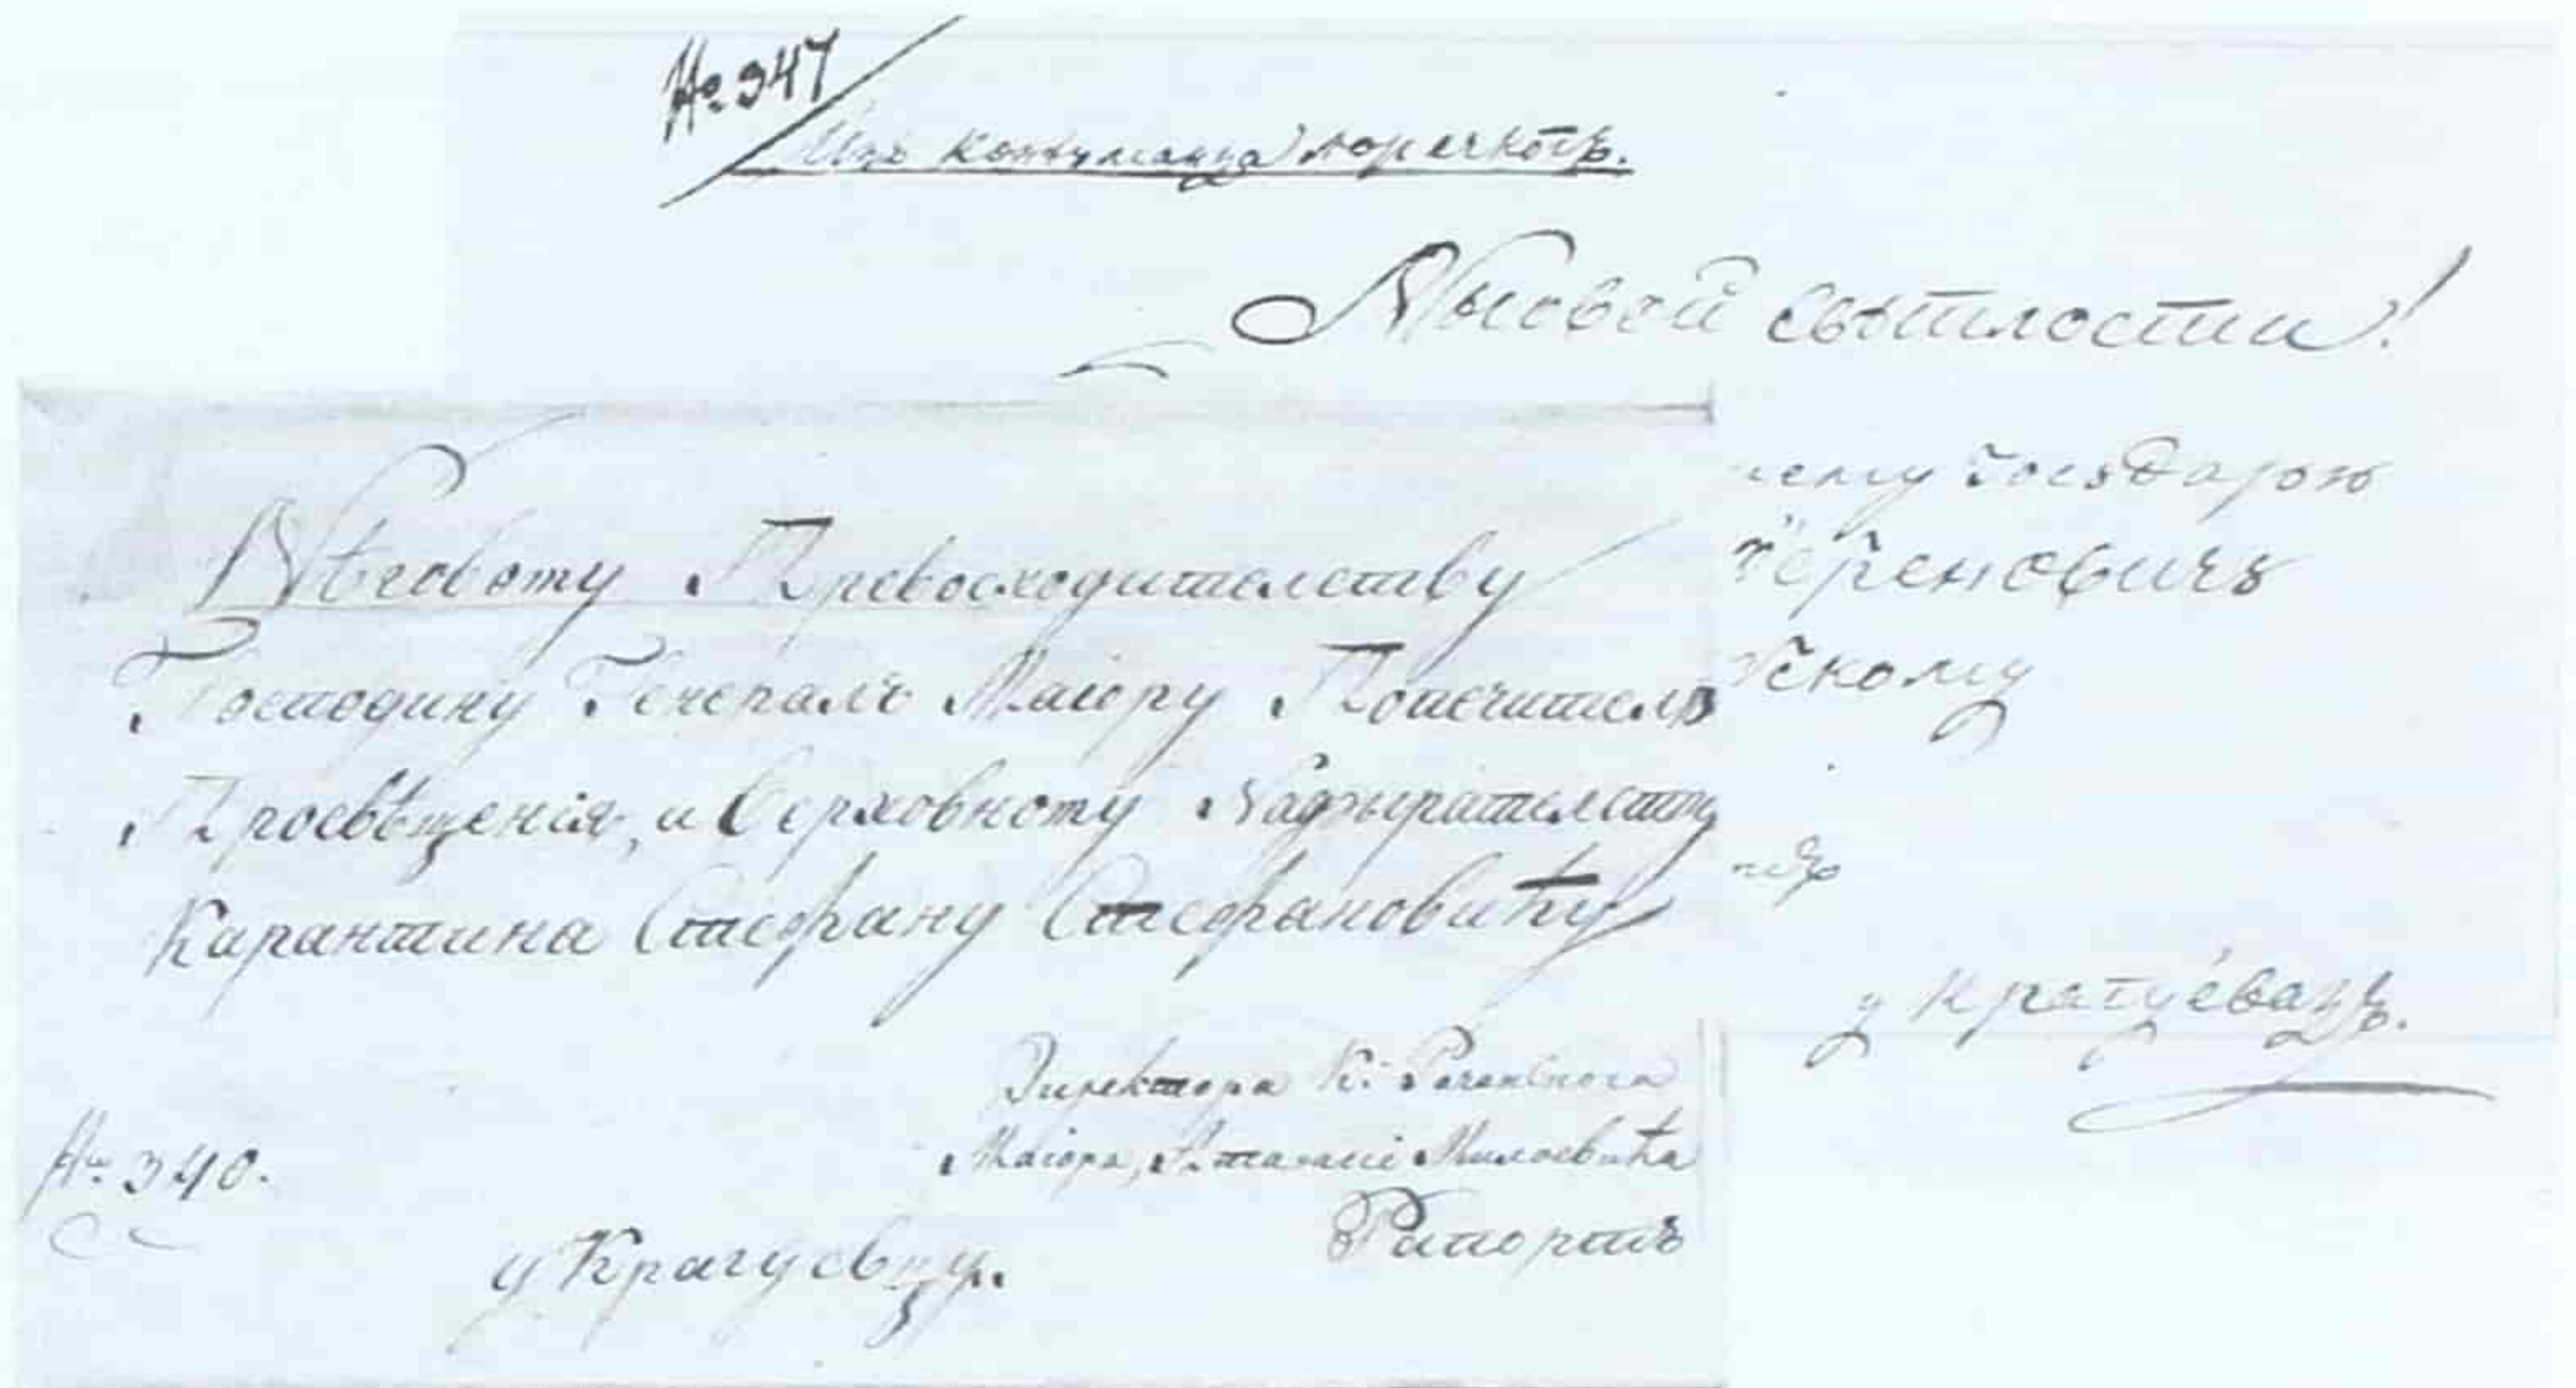 No. 947
Изъ контумаца поречкогъ.
Нѣговой свѣтлости!
Господарю
ему
Береновичъ
скому
у Крагуевацъ.
Нѣговому Превосходителству
Господину Генералъ Маіору Попечителю
Просвѣщенія, и Верховному Надзирателству
Карантина Стефану Стефановићу
Директора К.
Маіора, Атанасіе Милоевића
Рапортъ
No. 340.
у Крагуевцу.